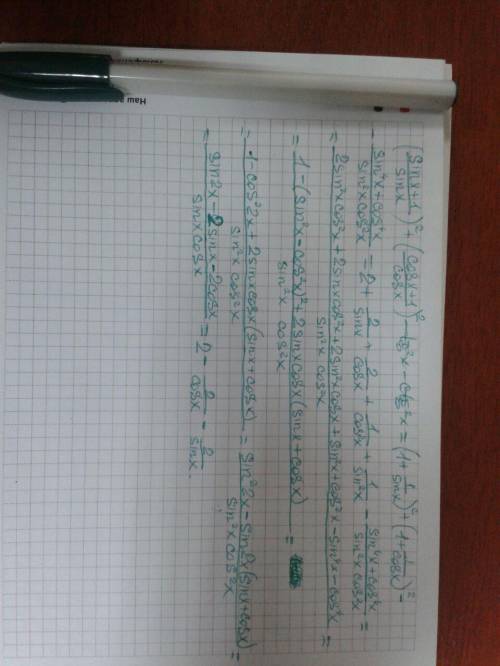 ((sinx+1)/sinx)² + ((cosx+1)/cosx)² - tg²x - ctg²x = (1+1/sinx)² + (1+1/cosx)² -
- (sin⁴x+cos⁴x)/(sin²x cos²x) = 2 + 2/sinx + 2/cosx + 1/cos²x + 1/sin²x - (sin⁴x+cos⁴x)/(sin²x cos²x) =
= (2sin²x cos²x + 2sinx cos²x + 2sin²x cosx + sin²x + cos²x - sin⁴x - cos⁴x)/(sin²x cos²x) =
= (1 - (sin²x - cos²x)² + 2sinx cosx (sinx + cosx))/(sin²x cos²x) =
= (1 - cos²2x + 2sinx cosx (sinx + cosx))/(sin²x cos²x) = (sin²2x - sin2x (sinx + cosx))/(sin²x cos²x) =
= (sin2x - 2sinx - 2cosx)/(sinx cosx) = 2 - 2/cosx - 2/sinx
Наш